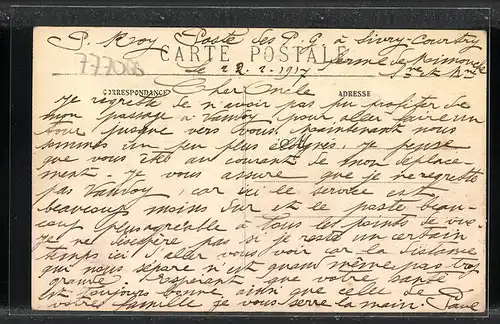 P. Roy Poste des P.G. à Sivry-Courtry
CARTE POSTALE
ferme de
777068
le 22.2.1917
S. et Mne
CORRESPONDANCE
ADRESSE
Cher Oncle
Je regrette de n'avoir pas pu profiter de
mon passage à pour aller faire un
tour jusque vers vous. Maintenant nous
sommes un peu plus éloignés. Je pense
que vous êtes au courant de mon déplace-
ment. Je vous assure que je ne regrette
pas car ici le service est
beaucoup moins dur et le poste beau-
coup plus agréable à tous les points de vue.
Je ne désespère pas si je reste un certain
temps ici d'aller vous voir car la distance
qui nous sépare n'est quand même pas trop
grande. Espérant que votre santé
est toujours bonne ainsi que celle de
votre famille je vous serre la main. Paul